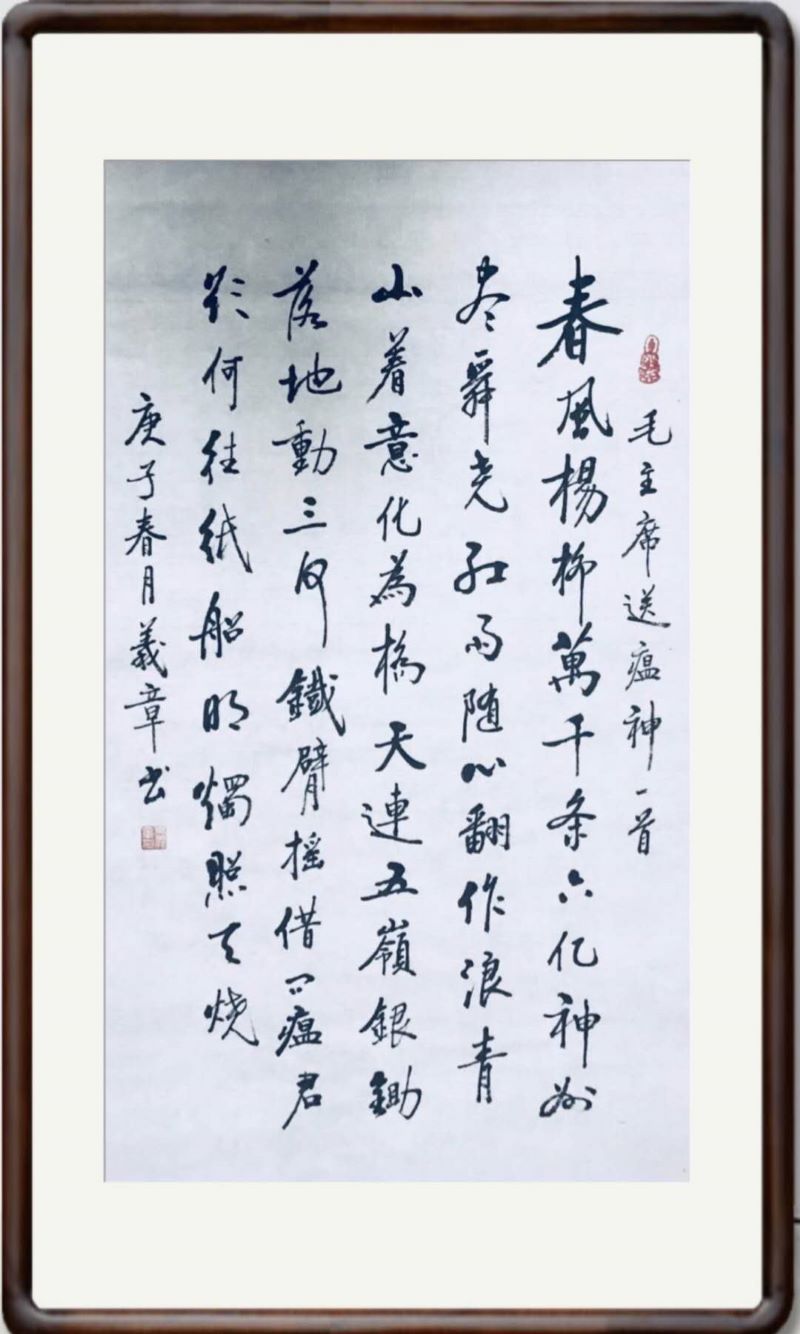 毛主席送瘟神一首
春風楊柳萬千条六亿神州
尽舜尧红雨随心翻作浪青
山着意化為橋天連五嶺銀鋤
落地動三河鐵臂摇借问瘟君
欲何往纸船明燭照天烧
庚子春月義章书